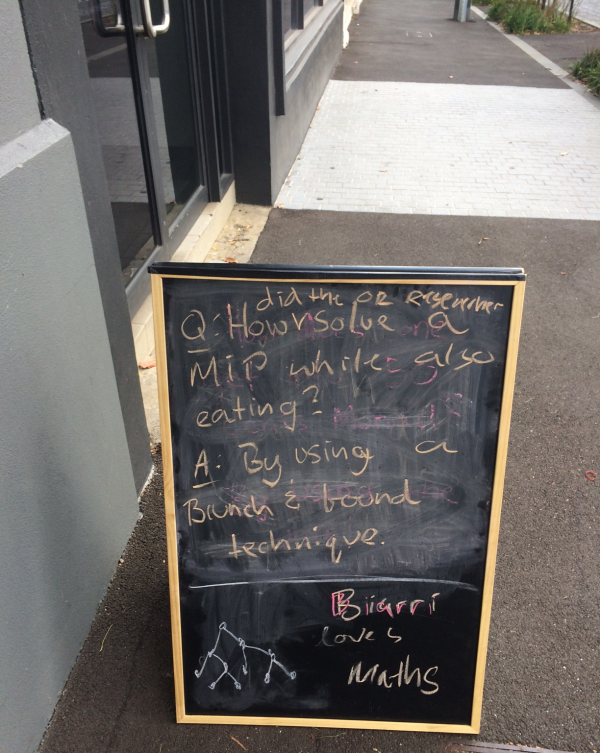 did the OR researcher
Q: How solve a
MIP while also
eating?
A: By using a
Brunch & bound
technique.
Biarri
loves
Maths